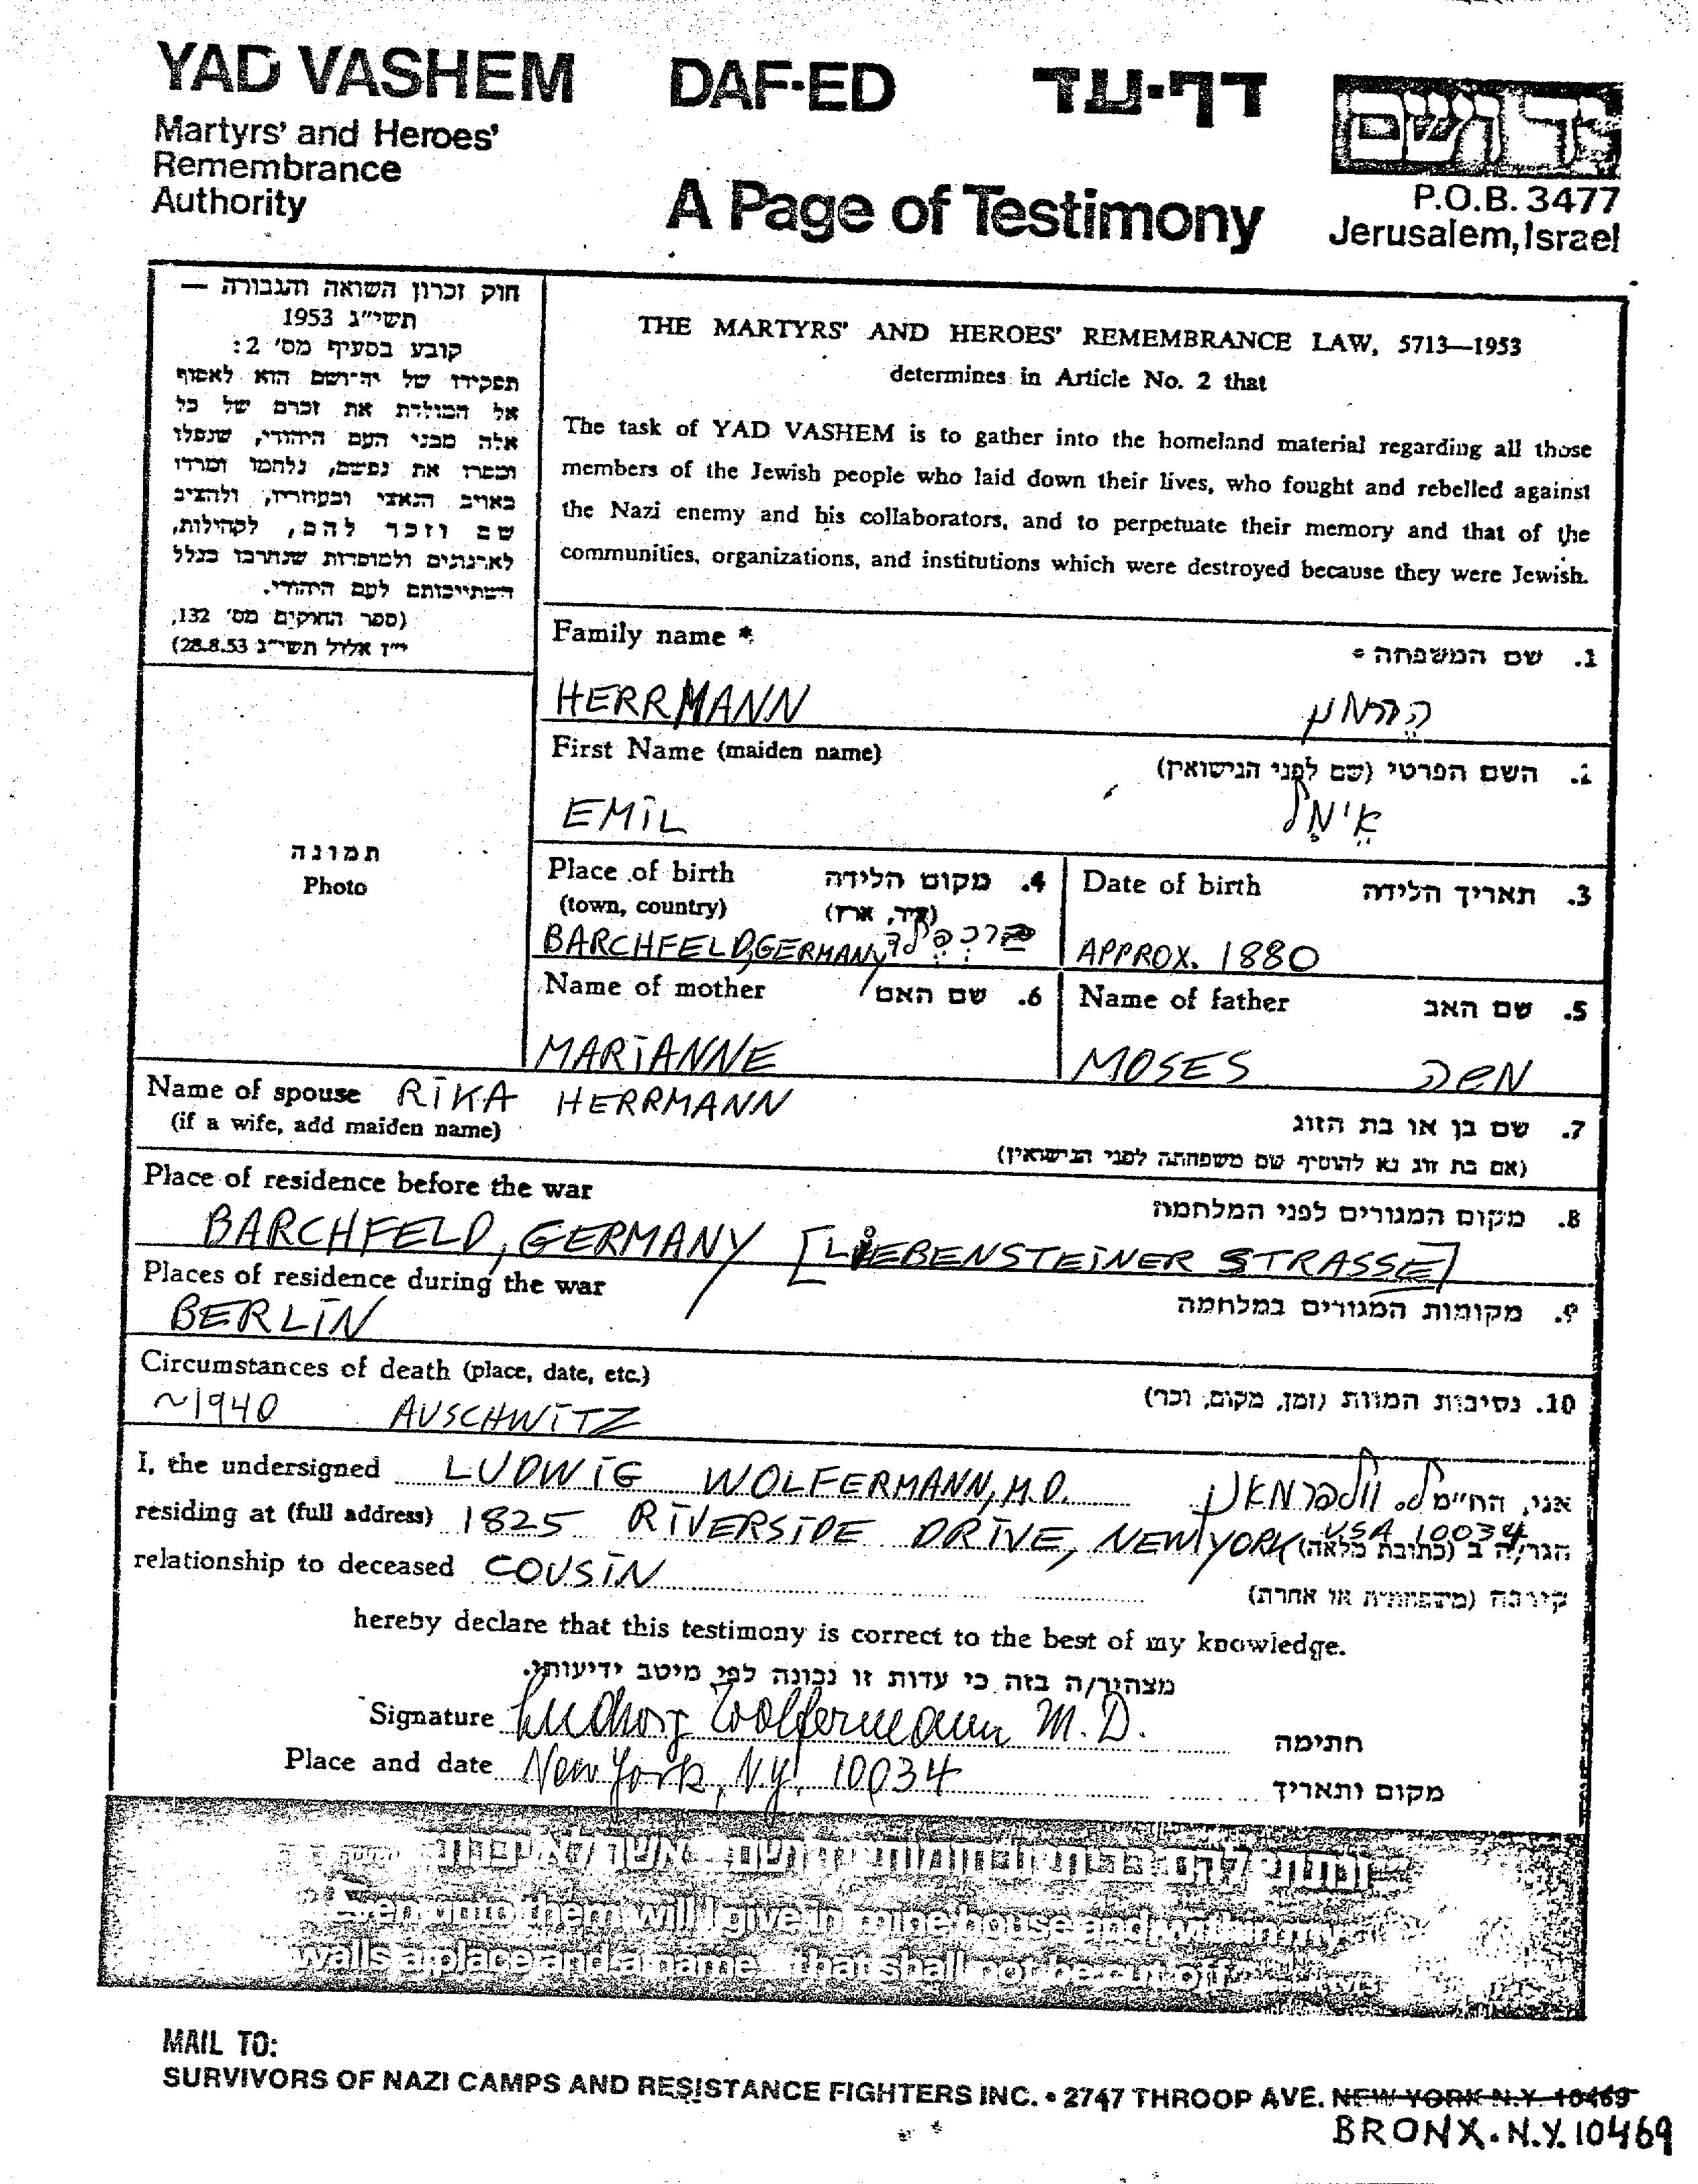 YAD VASHEM DAF-ED דף-עד
Martyrs' and Heroes'
Remembrance
Authority
A Page of Testimony
יד ושם
P.O.B. 3477
Jerusalem, Israel
חוק זכרון השואה והגבורה —
תשי״ג 1953
קובע בסעיף מס' 2:
תפקידו של יד-ושם הוא לאסוף
אל המולדת את זכרם של כל
אלה מבני העם היהודי, שנפלו
ומסרו את נפשם, נלחמו ומרדו
באויב הנאצי ובעוזריו, ולהציב
שם וזכר להם, לקהילות,
לארגונים ולמוסדות שנחרבו בגלל
השתייכותם לעם היהודי.
(ספר החוקים מס' 132,
י״ז אלול תשי״ג 28.8.53)
THE MARTYRS' AND HEROES' REMEMBRANCE LAW, 5713—1953
determines in Article No. 2 that
The task of YAD VASHEM is to gather into the homeland material regarding all those
members of the Jewish people who laid down their lives, who fought and rebelled against
the Nazi enemy and his collaborators, and to perpetuate their memory and that of the
communities, organizations, and institutions which were destroyed because they were Jewish.
Family name * 1. שם המשפחה *
HERRMANN הֶררמן
First Name (maiden name) 2. השם הפרטי (שם לפני הנישואין)
EMIL אֶימִל
תמונה
Photo
Place of birth 4. מקום הלידה
(town, country) (עיר, ארץ)
BARCHFELD, GERMANY ברכפלד
Date of birth 3. תאריך הלידה
APPROX. 1880
Name of mother 6. שם האם
MARIANNE
Name of father 5. שם האב
MOSES משה
Name of spouse RIKA HERRMANN 7. שם בן או בת הזוג
(if a wife, add maiden name) (אם בת זוג נא להוסיף שם משפחתה לפני הנישואין)
Place of residence before the war 8. מקום המגורים לפני המלחמה
BARCHFELD, GERMANY [LIEBENSTEINER STRASSE]
Places of residence during the war 9. מקומות המגורים במלחמה
BERLIN
Circumstances of death (place, date, etc.) 10. נסיבות המוות (זמן, מקום, וכו')
~1940 AUSCHWITZ
I, the undersigned LUDWIG WOLFERMANN, M.D. אני, הח״מ ל. וולפרמאן
residing at (full address) 1825 RIVERSIDE DRIVE, NEW YORK USA 10034 הגר/ה ב (כתובת מלאה)
relationship to deceased COUSIN קירבה (משפחתית או אחרת)
hereby declare that this testimony is correct to the best of my knowledge.
מצהיר/ה בזה כי עדות זו נכונה לפי מיטב ידיעותי.
Signature Ludwig Wolfermann M.D. חתימה
Place and date New York, N.Y. 10034 מקום ותאריך
ונתתי להם בביתי ובחומותי יד ושם אשר לא יכרת
Even unto them will I give in mine house and within my
walls a place and a name that shall not be cut off
MAIL TO:
SURVIVORS OF NAZI CAMPS AND RESISTANCE FIGHTERS INC. • 2747 THROOP AVE. NEW YORK N.Y. 10469
BRONX. N.Y. 10469